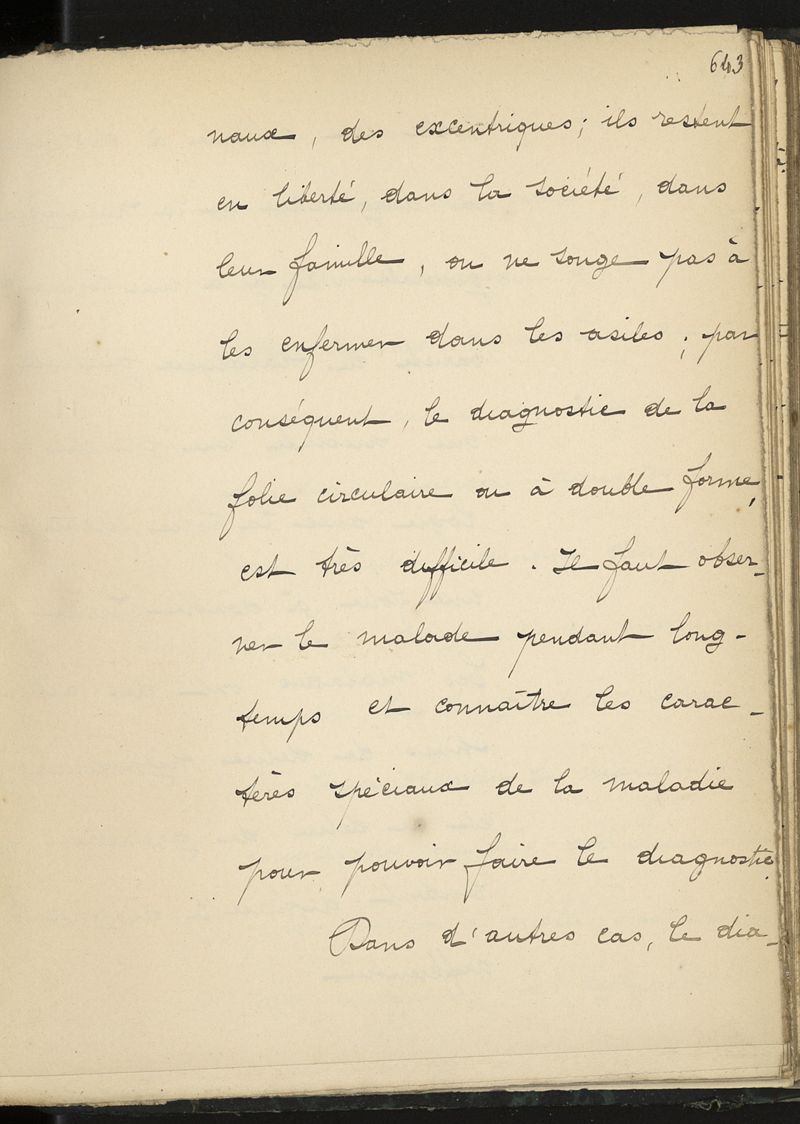 643
naux, des excentriques; ils restent
en liberté, dans la société, dans
leur famille, on ne songe pas à
les enfermer dans les asiles; par
conséquent, le diagnostic de la
folie circulaire ou à double forme,
est très difficile. Il faut obser-
ver le malade pendant long-
temps et connaître les carac-
tères spéciaux de la maladie
pour pouvoir faire le diagnostic.
Dans d'autres cas, le dia-